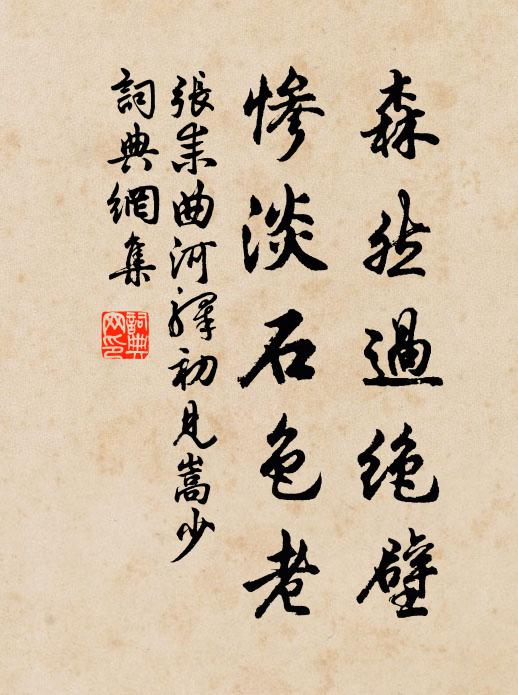 森然過絶壁
慘淡石色老
張耒曲河驛初見嵩少
詞典網集
詞典
网印